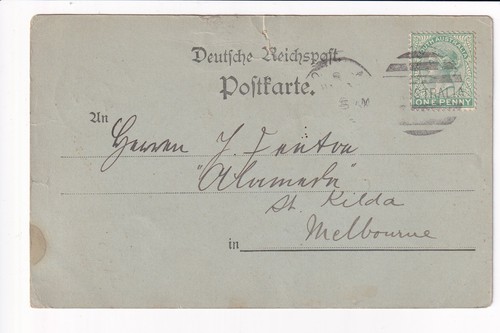 Deutsche Reichspost.
Postkarte.
SOUTH AUSTRALIA
ONE PENNY
An
Herren J.
"Alameda"
St. Kilda
in Melbourne